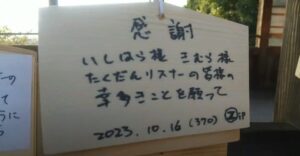 感謝
いしはら様 きむら様
たくだんリスナーの皆様の
幸多きことを願って
2023.10.16 (370)